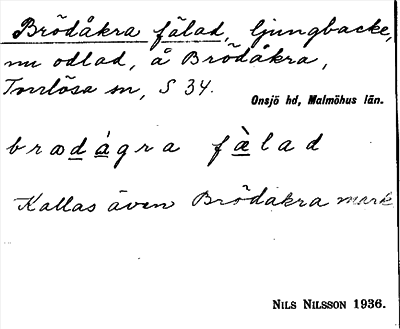 Brödåkra fälad, ljungbacke,
nu odlad, å Brödåkra,
Torrlösa sn, S 34.
Onsjö hd, Malmöhus län.
brædågra fælad
Kallas även Brödåkra mark
NILS NILSSON 1936.